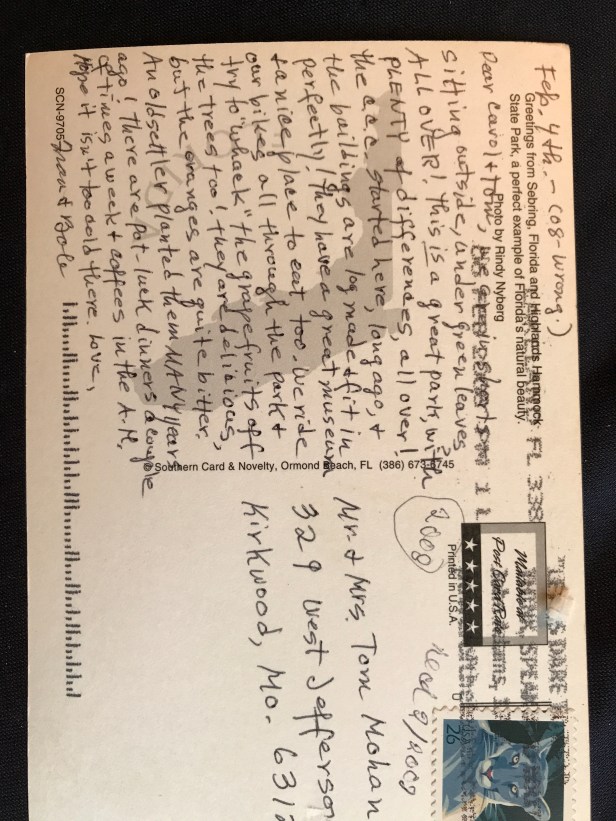 Feb. 4th. - (08 - wrong.)
Greetings from Sebring, Florida and Highlands Hammock
State Park, a perfect example of Florida's natural beauty.
Photo by Rindy Nyberg
Dear Carol & Tom, we are in shorts
sitting outside, under green leaves
ALL OVER! This is a great park, with
PLENTY of differences, all over!
the c.c.c. started here, long ago, &
the buildings are log made & fit in
perfectly! They have a great museum
& a nice place to eat too. We ride
our bikes all through the park &
try to "whack" the grapefruits off
the trees too! they are delicious,
but the oranges are quite bitter.
An old settler planted them MANY years
ago! there are pot-luck dinners a couple
of times a week & coffees in the A.M.
Hope it isn't too cold there. Love,
Fran & Bole
SCN-9705
© Southern Card & Novelty, Ormond Beach, FL (386) 673-6745
FL 338
2008
Post Card
Printed in U.S.A.
26
Recd 2/2008
Mr. & Mrs. Tom Mohan
329 West Jefferson
Kirkwood, Mo. 631